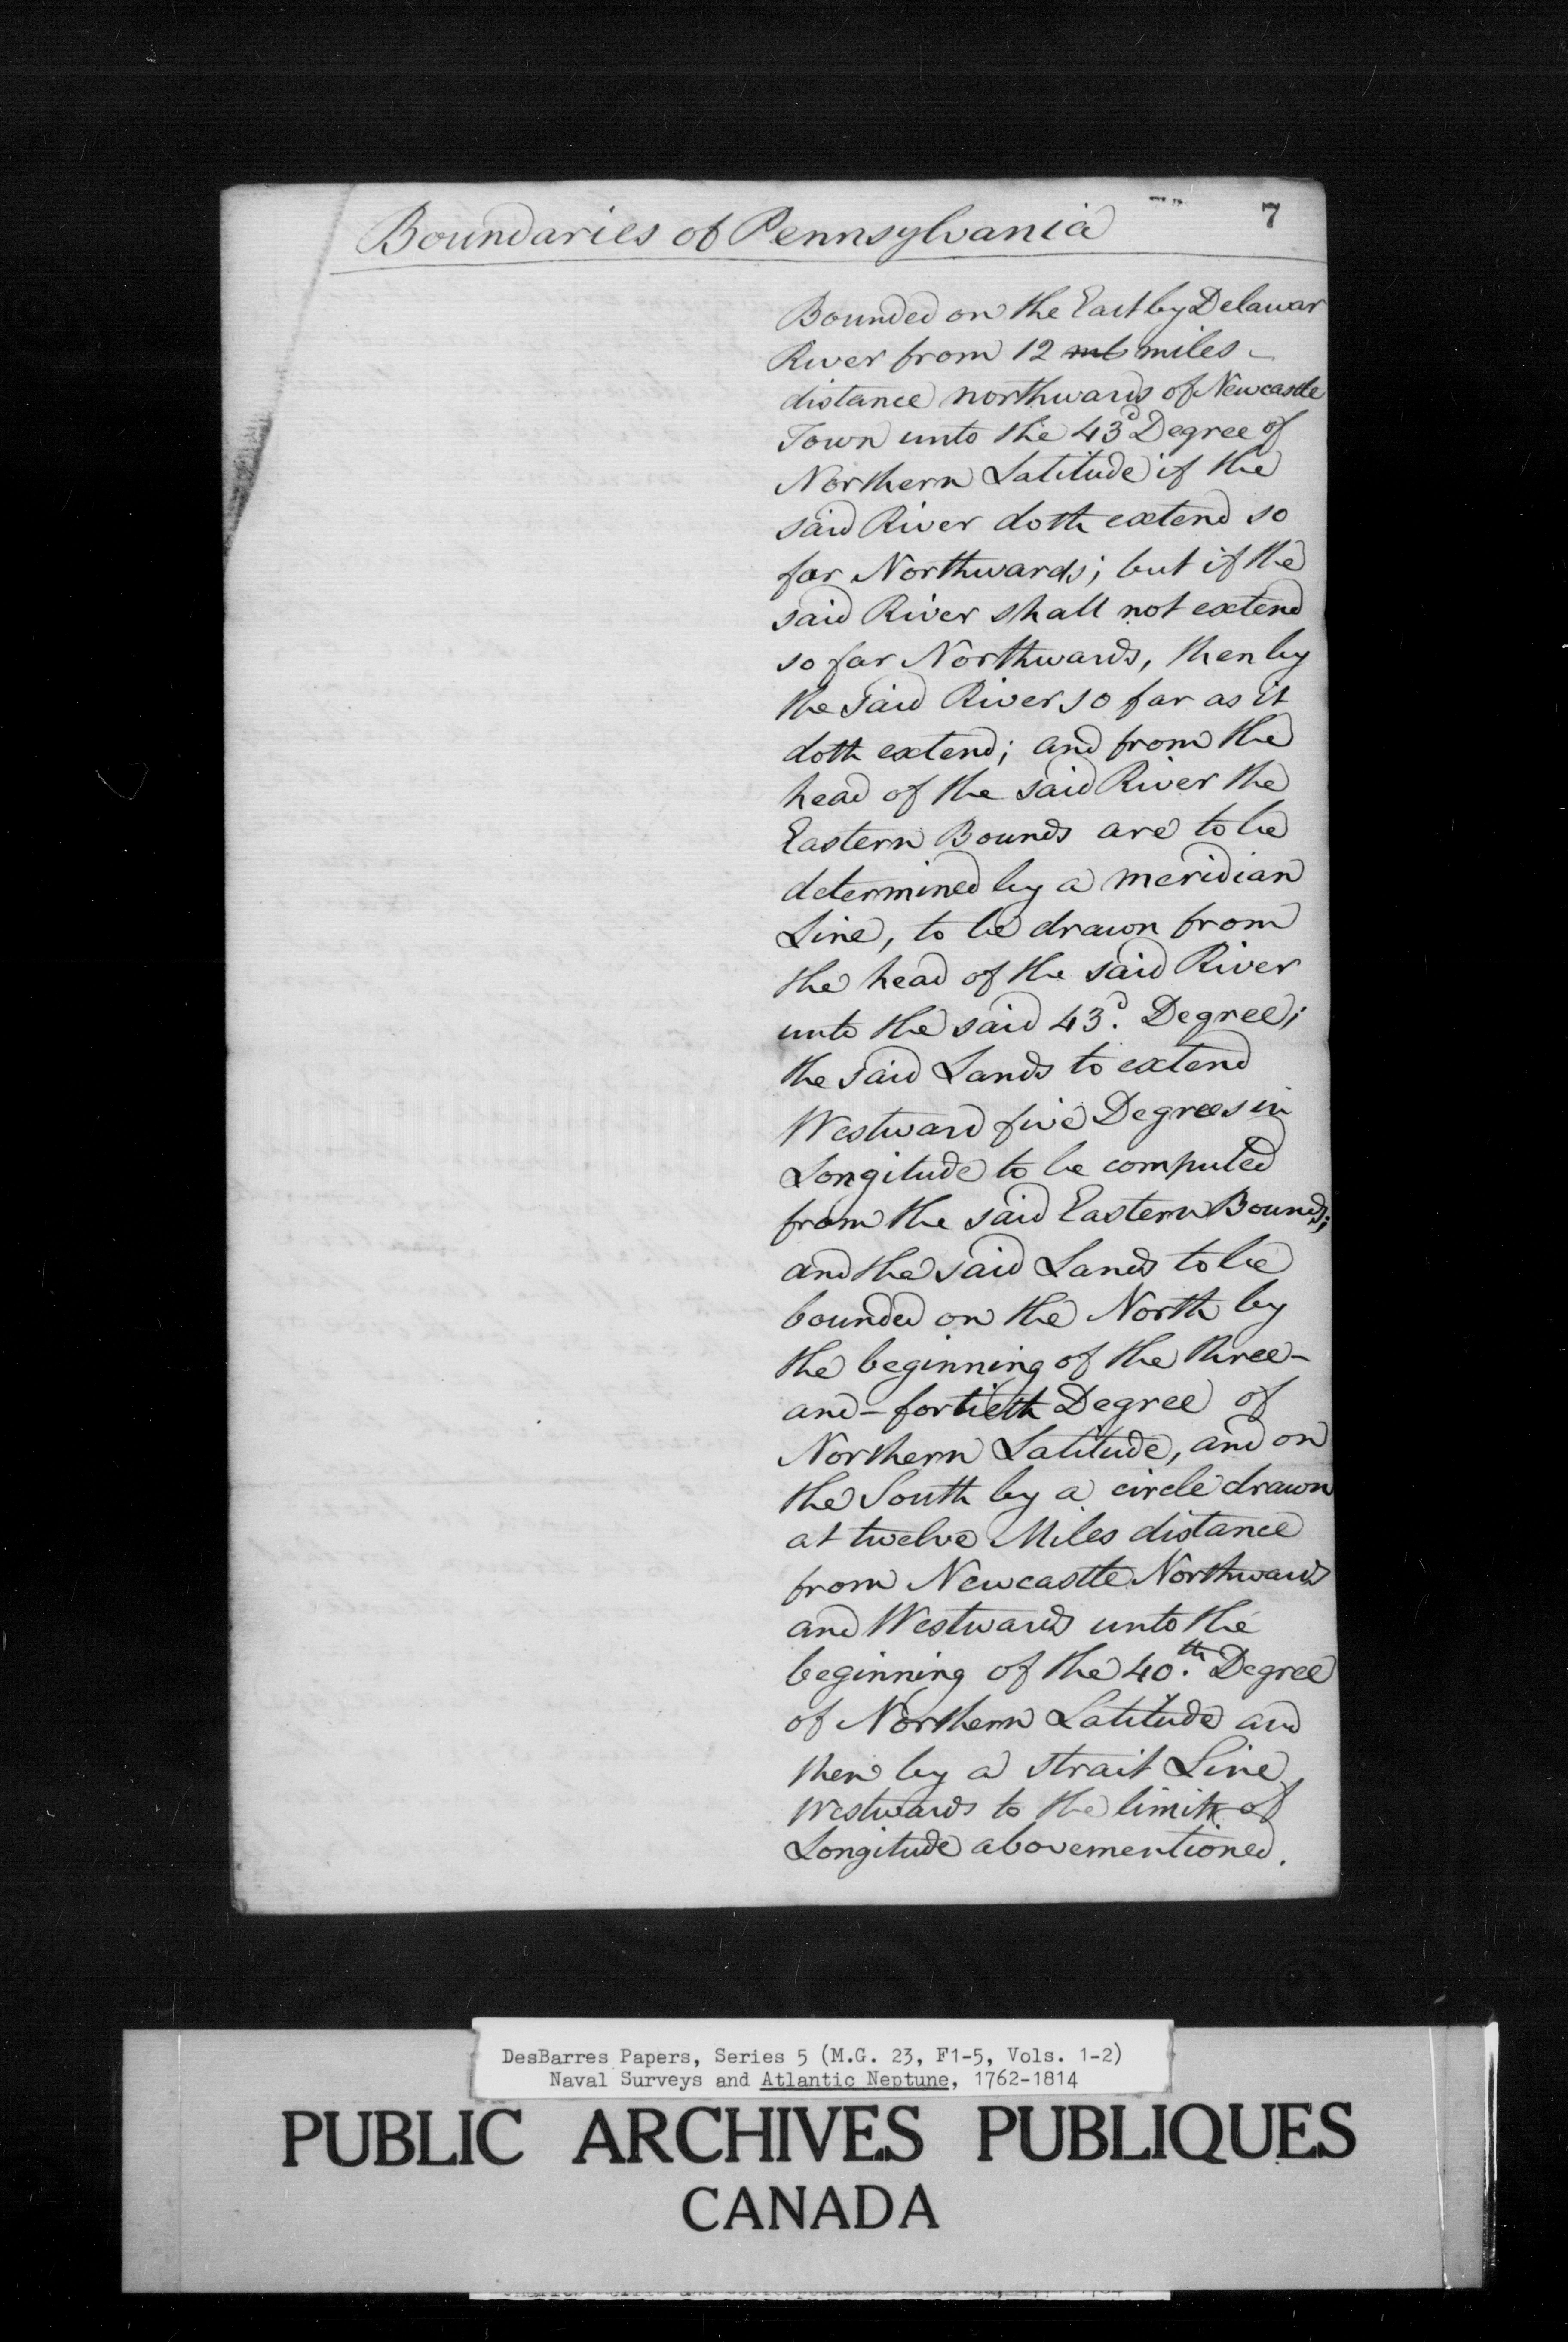 Boundaries of Pennsylvania
7
Bounded on the East by Delawar
River from 12 ml miles -
distance northwards of Newcastle
Town unto the 43d Degree of
Northern Latitude if the
said River doth extend so
far Northwards; but if the
said River shall not extend
so far Northwards, then by
the said River so far as it
doth extend; and from the
head of the said River the
Eastern Bounds are to be
determined by a meridian
Line, to be drawn from
the head of the said River
unto the said 43d. Degree;
the said Lands to extend
Westward five Degrees in
Longitude to be computed
from the said Eastern Bounds;
and the said Lands to be
bounded on the North by
the beginning of the three-
and-fortieth Degree of
Northern Latitude, and on
the South by a circle drawn
at twelve Miles distance
from Newcastle Northwards
and Westwards unto the
beginning of the 40.th Degree
of Northern Latitude and
then by a strait Line
Westwards to the limits of
Longitude abovementioned.
DesBarres Papers, Series 5 (M.G. 23, F1-5, Vols. 1-2)
Naval Surveys and Atlantic Neptune, 1762-1814
PUBLIC ARCHIVES PUBLIQUES
CANADA